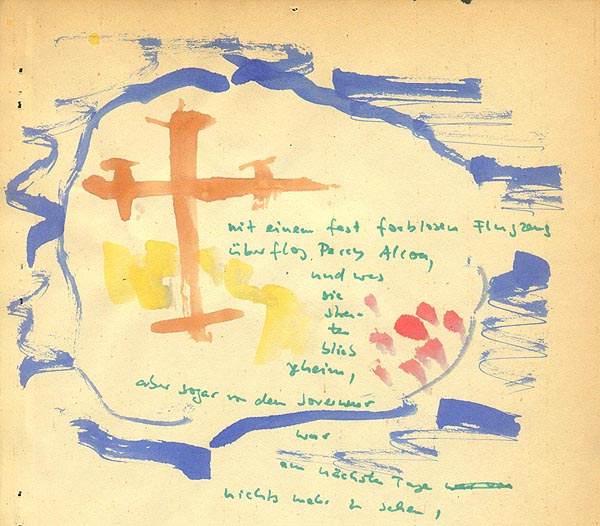 mit einem fast farblosen Flugzeug
überflog Percy Alcon,
und was
sie
streu-
ten
blieb
geheim,
aber sogar von dem Gouverneur
war
am nächsten Tage
nichts mehr zu sehen,